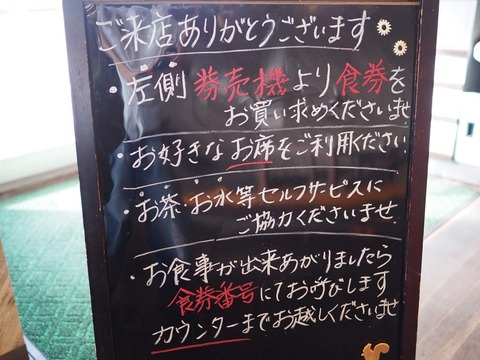 ご来店ありがとうございます
・左側 券売機より食券を
お買い求めくださいませ
・お好きなお席をご利用ください
・お茶・お水等セルフサービスに
ご協力くださいませ.
・お食事が出来あがりましたら
食券番号にてお呼びします
カウンターまでお越しくださいませ